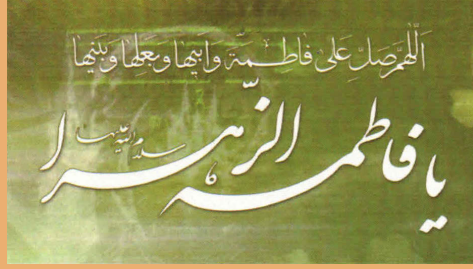 اللهم صل علی فاطمة وابیها وبعلها وبنیها
یا فاطمه الزهرا
سلام الله علیها